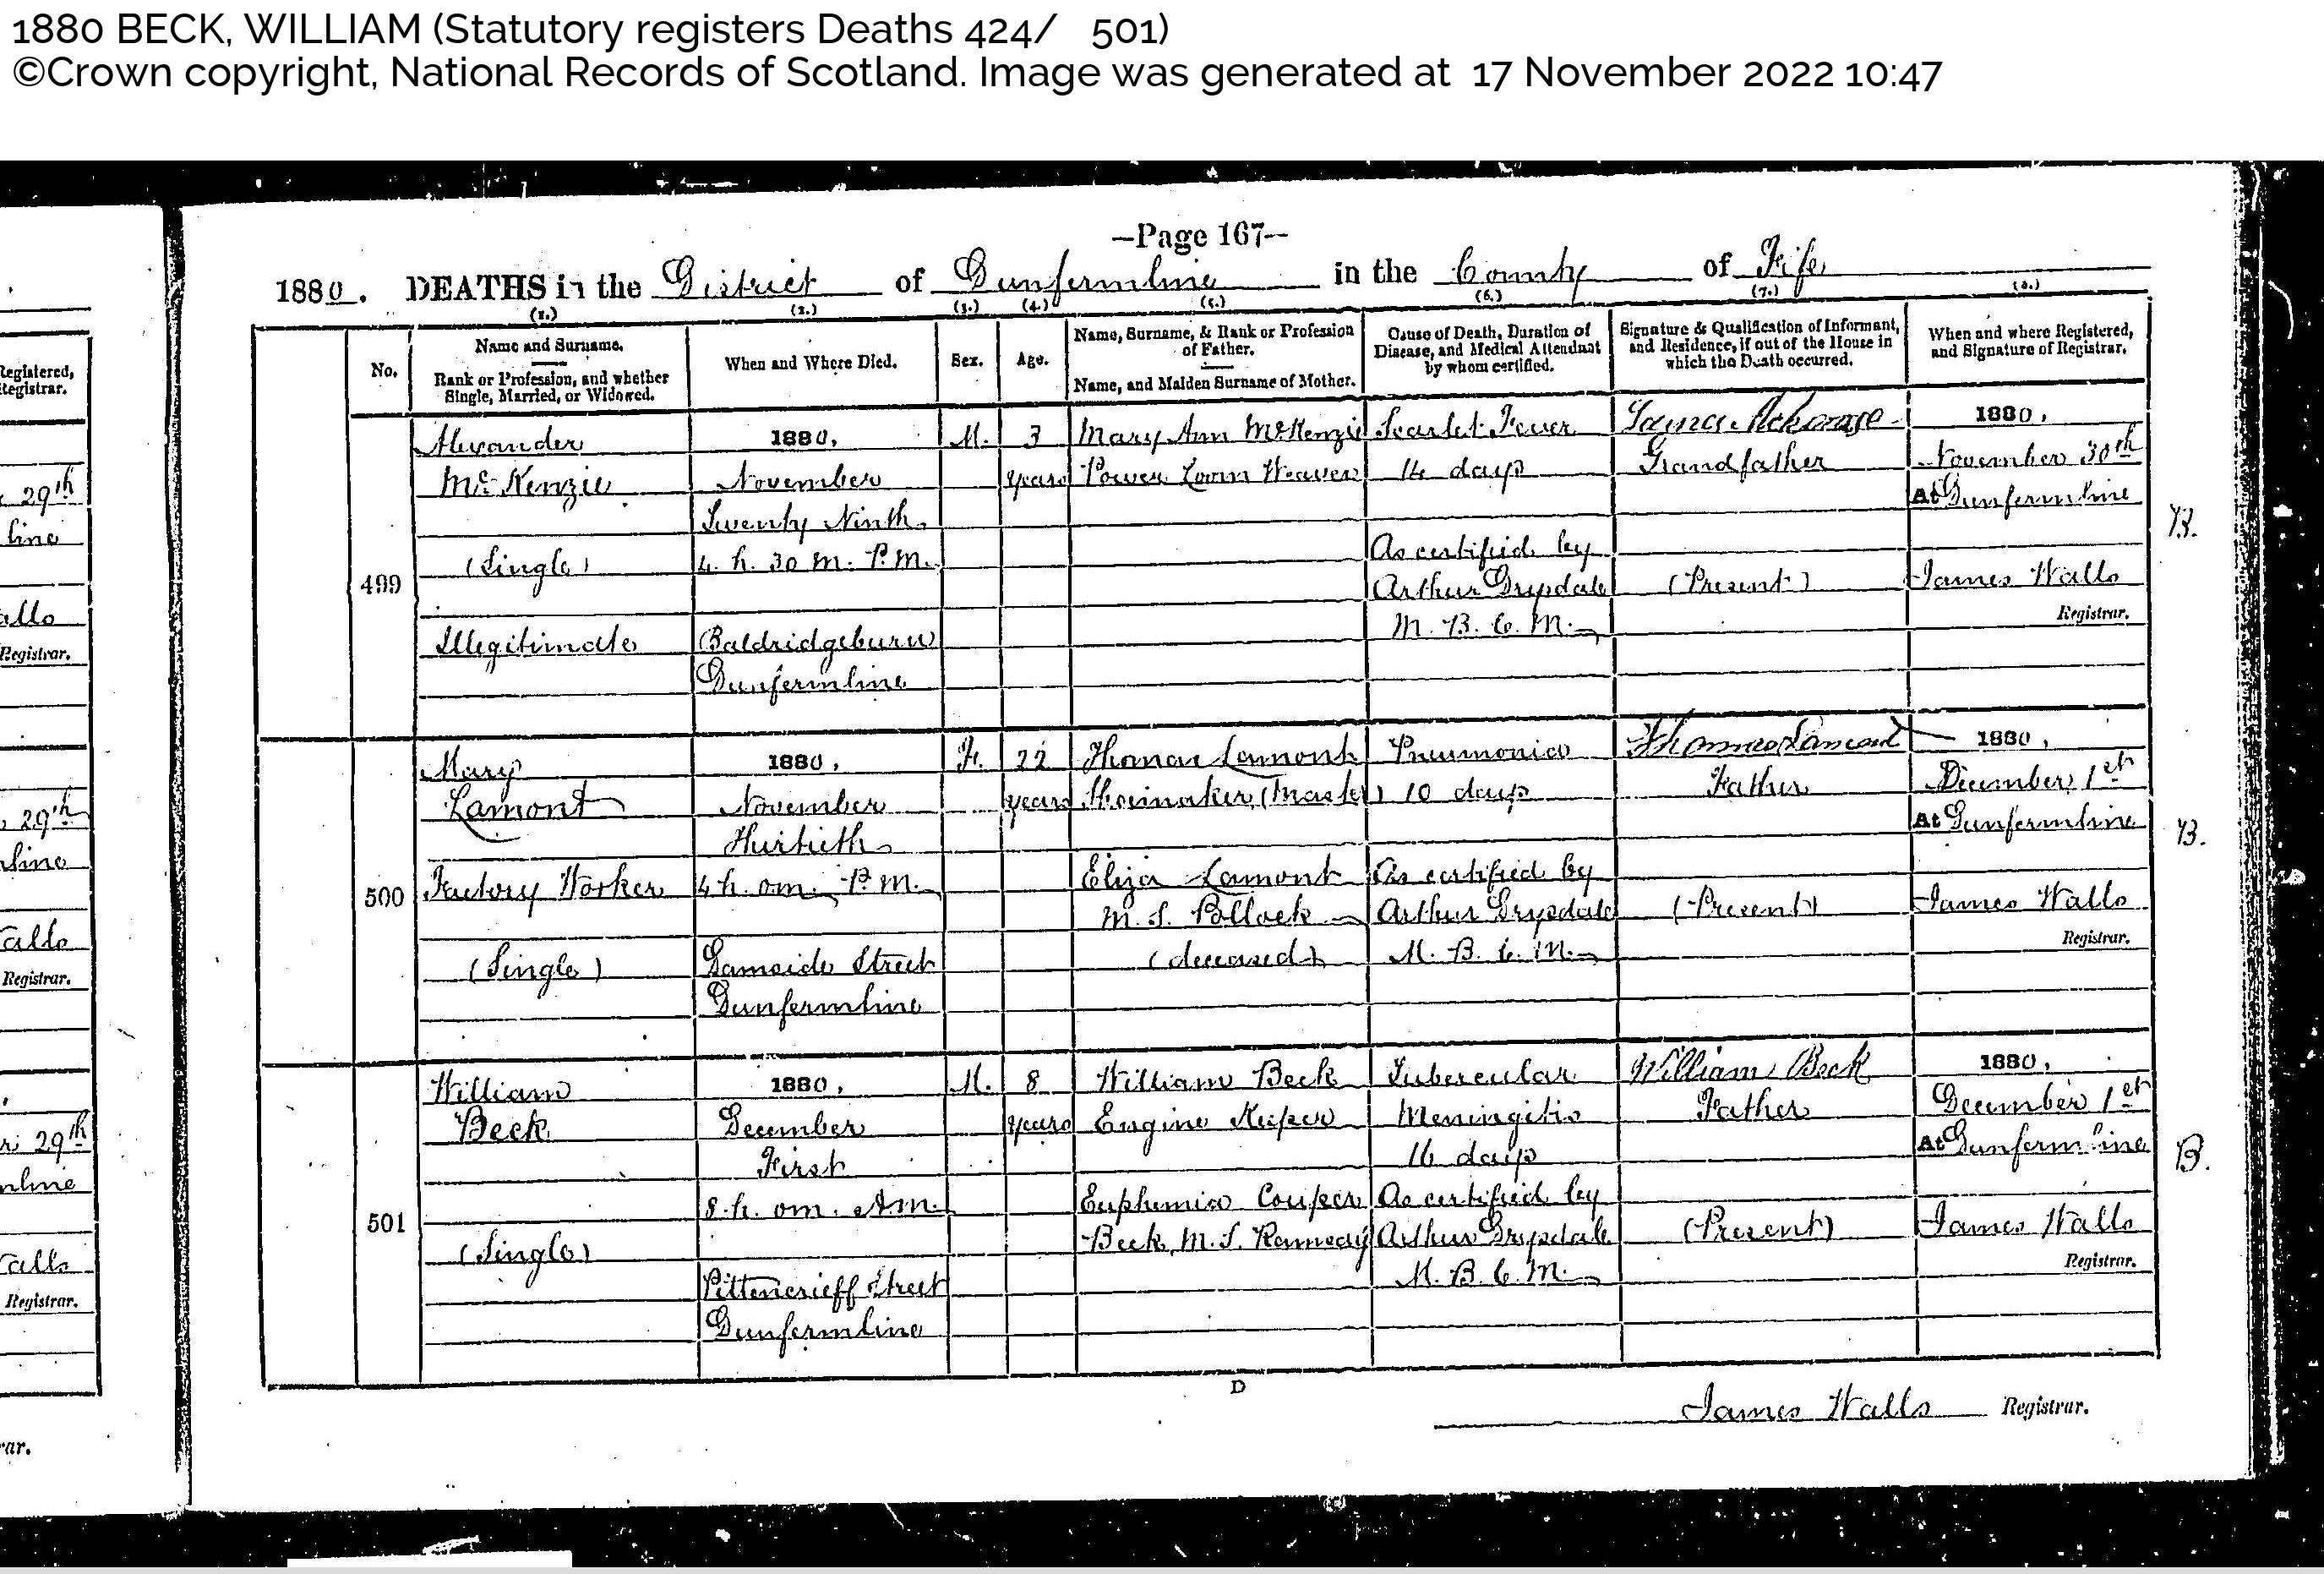 1880 BECK, WILLIAM (Statutory registers Deaths 424/ 501)
©Crown copyright, National Records of Scotland. Image was generated at 17 November 2022 10:47
—Page 167—
1880. DEATHS in the District of Dunfermline in the County of Fife
(1.) (2.) (3.) (4.) (5.) (6.) (7.) (8.)
No.
Name and Surname.
Rank or Profession, and whether
Single, Married, or Widowed.
When and Where Died.
Sex.
Age.
Name, Surname, & Rank or Profession
of Father.
Name, and Maiden Surname of Mother.
Cause of Death, Duration of
Disease, and Medical Attendant
by whom certified.
Signature & Qualification of Informant,
and Residence, if out of the House in
which the Death occurred.
When and where Registered,
and Signature of Registrar.
499
Alexander
McKenzie
(Single)
Illegitimate
1880,
November
Twenty Ninth
4. h. 30 m. P.M.
Baldridgeburn
Dunfermline
M.
3
years
Mary Ann McKenzie
Power Loom Weaver
Scarlet Fever
14 days
As certified by
Arthur Drysdale
M. B. C. M.
Grandfather
(Present)
1880,
November 30th
At Dunfermline
James Walls
Registrar.
B.
500
Mary
Lamont
Factory Worker
(Single)
1880,
November
Thirtieth
4 h. 0m. P.M.
Damside Street
Dunfermline
F.
22
years
Thomas Lamont
Shoemaker (Master)
Eliza Lamont
M. S. Pollock
(deceased)
Pneumonia
10 days
As certified by
Arthur Drysdale
M. B. C. M.
Thomas Lamont
Father
(Present)
1880,
December 1st
At Dunfermline
James Walls
Registrar.
B.
501
William
Beck
(Single)
1880,
December
First
8. h. 0m. A.m.
Pittencrieff Street
Dunfermline
M.
8
years
William Beck
Engine Keeper
Euphemia Couper
Beck, M.S. Kennedy
Tubercular
Meningitis
16 days
As certified by
Arthur Drysdale
M. B. C. M.
William Beck
Father
(Present)
1880,
December 1st
At Dunfermline
James Walls
Registrar.
B.
D
James Walls Registrar.